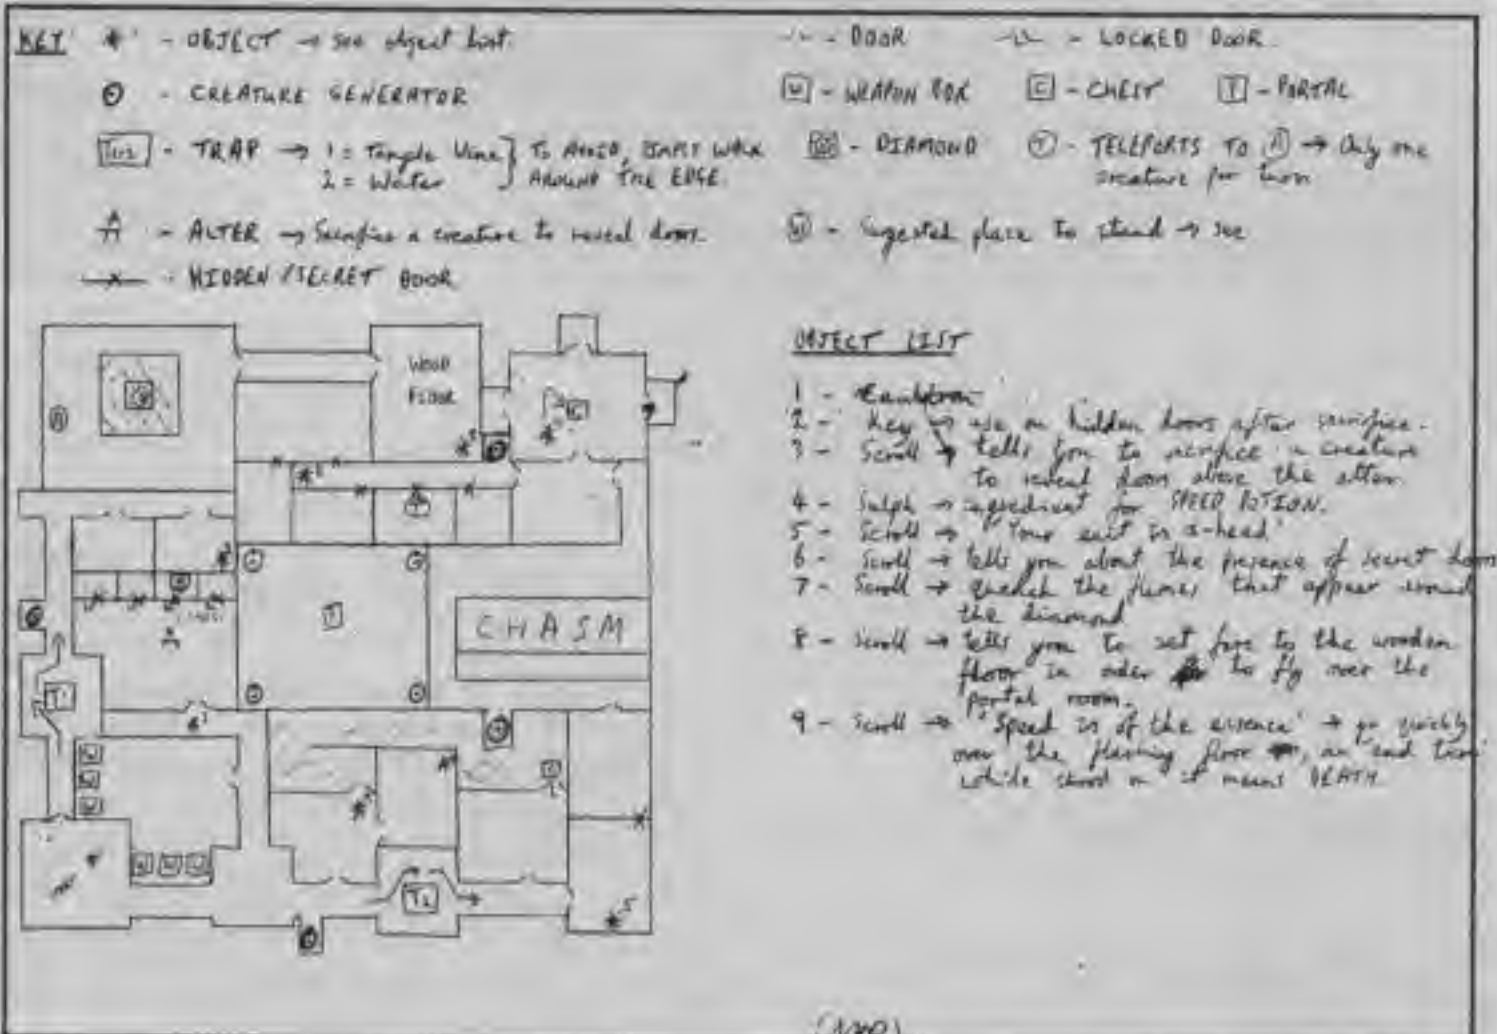 KEY * - OBJECT → see object list.
- CREATURE GENERATOR
T1+2 - TRAP → 1 = Tangle Vine } TO AVOID, SIMPLY WALK
2 = Water } AROUND THE EDGE.
A - ALTER → Sacrifice a creature to reveal doors.
-x- - HIDDEN/SECRET DOOR
- DOOR - LOCKED DOOR.
W - WEAPON BOX C - CHEST T - PORTAL
- DIAMOND T - TELEPORTS TO A → Only one
creature per turn
- Sugested place to stand → see
WOOD
FLOOR
C
T
CHASM
T1
T2
OBJECT LIST
1 - Cauldron
2 - Key → use on hidden doors after sacrifice.
3 - Scroll → tells you to sacrifice a creature
to reveal doors above the alter.
4 - Sulph → ingredient for SPEED POTION.
5 - Scroll → "Your exit is a-head"
6 - Scroll → tells you about the presence of secret doors
7 - Scroll → quench the flames that appear around
the diamond
8 - Scroll → tells you to set fire to the wooden
floor in order to fly over the
portal room.
9 - Scroll → 'Speed is of the essence' → go quickly
over the flaming floor, an 'end turn'
while stood on it means DEATH
(MAP)